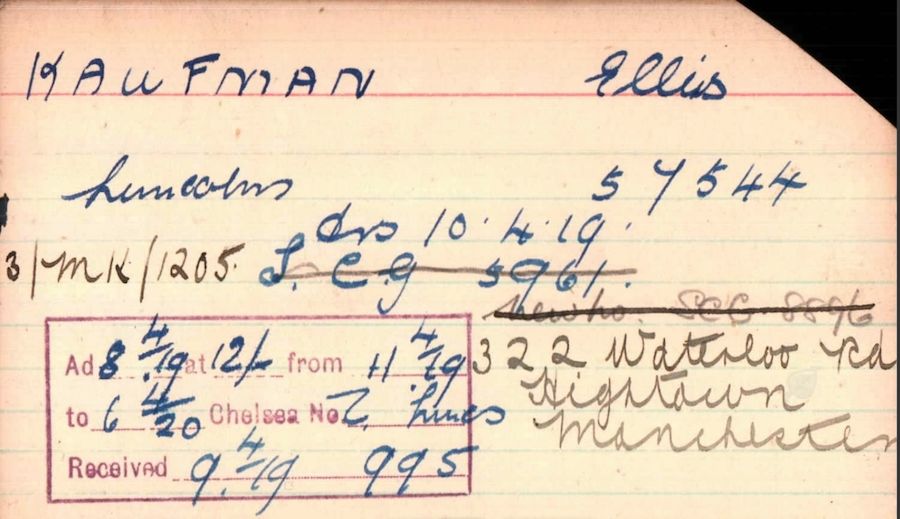 KAUFMAN Ellis
Lincolns 57544
dis 10.4.19.
3/MK/1205. S.C.G 5961.
new no. SCG 8896
Ad 8 4/19 at 12/- from 11 4/19 322 Waterloo Rd
to 6 4/20 Chelsea No Z Lincs Hightown
Manchester
Received 9.4/19 995